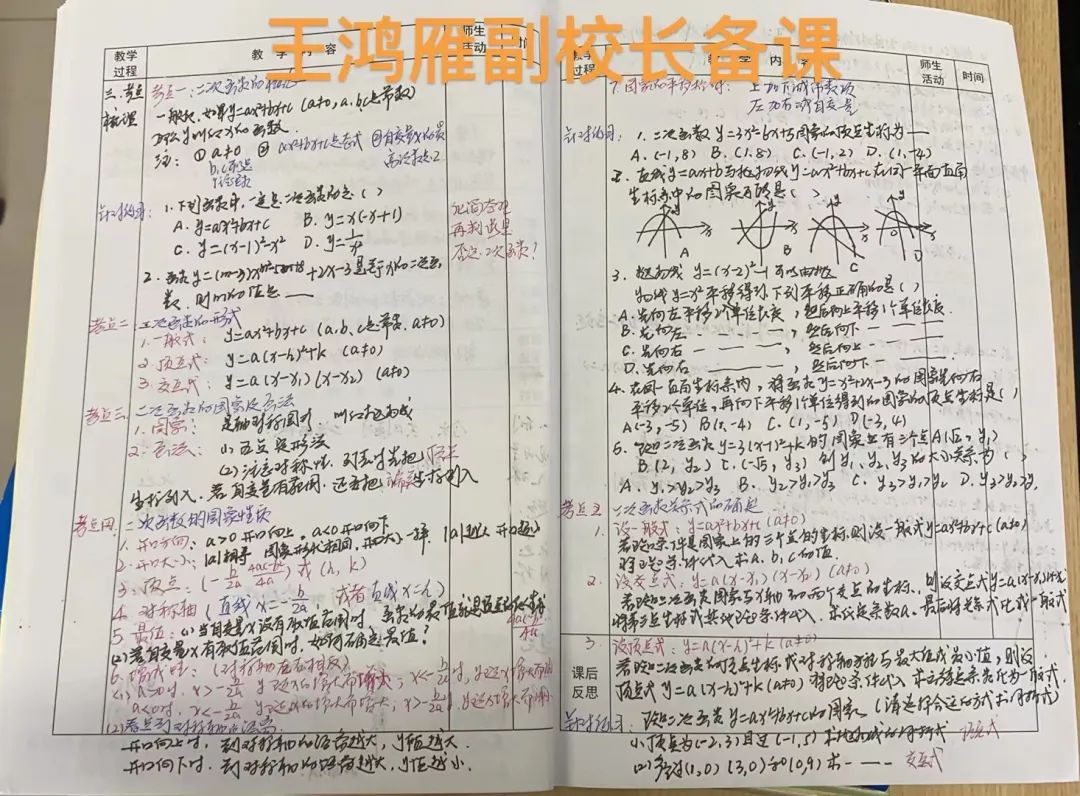 王鸿雁副校长备课
教学过程
教学内容
师生活动
时间
三.考点梳理
考点一:二次函数的概念
一般地,如果y=ax²+bx+c (a≠0, a.b.c是常数)
那么y叫做x的函数.
注: ① a≠0 ② ax²+bx+c是整式 ③自变量x的最高次数是2
b,c可以
针对练习:
1.下列函数中,一定是二次函数的是( )
A. y=ax²+bx+c B. y=x(-x+1)
C. y=(x-1)²-x² D. y=1/x²
再判断是
否是二次函数?
+2x-3是关于x的二次函数,则m的值是——
考点二
二次函数的形式
1.一般式: y=ax²+bx+c (a,b,c是常数,a≠0)
2.顶点式: y=a(x-h)²+k (a≠0)
3.交点式: y=a(x-x₁)(x-x₂) (a≠0)
考点三
二次函数的图象及画法
1.图象: 是轴对称图形,
2.画法: (1)五点
(2)注意对称性,列表时先把
坐标列入.若自变量有范围,还要把端点坐标列入
考点四
二次函数的图象性质
1.开口方向: a>0开口向上,a<0开口向下
2.开口大小: |a|相等 图象形状相同,开口大小一样 |a|越大开口越小
3.顶点: (-b/2a, 4ac-b²/4a) 或 (h,k)
4.对称轴 (直线x=-b/2a, 或者直线x=h)
5.最值: (1)当自变量x没有取值范围时
4ac-b²/4a
(2)若自变量x有取值范围时,如何确定最值?
6.增减性: (对称轴左右相反)
(1) a>0时, x>-b/2a y随x的增大而增大; x<-b/2a时, y随x增大而减小
a<0时, x<-b/2a y随x的增大而增大; x>-b/2a时, y随x增大而减小
(2)看点到对称轴的距离
开口向上时,到对称轴的距离越大,y值越大.
开口向下时,到对称轴的距离越大,y值越小.
教学过程
教学内容
师生活动
时间
7.图象的平移规律: 上加下减常数项
左加右减自变量
针对练习:
1.二次函数y=3x²-6x+5图象的顶点坐标为——
A. (-1,8) B. (1.8) C. (-1,2) D. (1,-4)
2.直线y=ax+b与抛物线y=ax²+bx+c在同一平面直角
坐标系中的图象可能是( )
A B C D
3.抛物线 y=(x-2)²-1可以由抛
物线y=x²平移得到,下列平移正确的是( )
A.先向左平移2个单位长度,然后向上平移1个单位长度.
B.先向左 — — — —, 然后向下 — —
C.先向右 — — — —, 然后向上 — —
D.先向右 — — — —, 然后向下 — —
4.在同一直角坐标系内,将函数y=x²+2x-3的图象先向右
平移2个单位,再向下平移1个单位得到的图象的顶点坐标是( )
A(-3,-5) B(1,-4) C. (1,-5) D(-3,4)
6.已知二次函数y=3(x-1)²+k的图象上有三个点A(√2, y₁)
B.(2, y₂) C.(-√5, y₃) 则y₁、y₂、y₃的大小关系为( )
A. y₁>y₂>y₃ B. y₂>y₁>y₃ C. y₃>y₁>y₂ D. y₃>y₂>y₁
考点五
二次函数关系式的确定
1.设一般式: y=ax²+bx+c (a≠0)
若已知条件是图象上的三个点的坐标.则设一般式y=ax²+bx+c (a≠0)
将已知条件代入求a、b、c的值
2.设交点式: y=a(x-x₁)(x-x₂) (a≠0)
若已知二次函数图象与x轴的两个交点的坐标,则设交点式y=a(x-x₁)(x-x₂)
将第三点坐标或其他已知条件代入,求待定系数a.最后将关系式化成一般式
课后反思
3.设顶点式: y=a(x-h)²+k (a≠0)
若已知二次函数的顶点坐标或对称轴方程与最大值或最小值,则设
顶点式y=a(x-h)²+k (a≠0) 将已知条件代入 求待定系数化为一般式.
针对练习:
已知二次函数y=ax²+bx+c的图象 (请选择合适的方式求解析式)
(1)顶点为(-2,3)且过(-1,5) 顶点式
(2)图象过(1,0)(3,0)和(0,9)求- —— 交点式